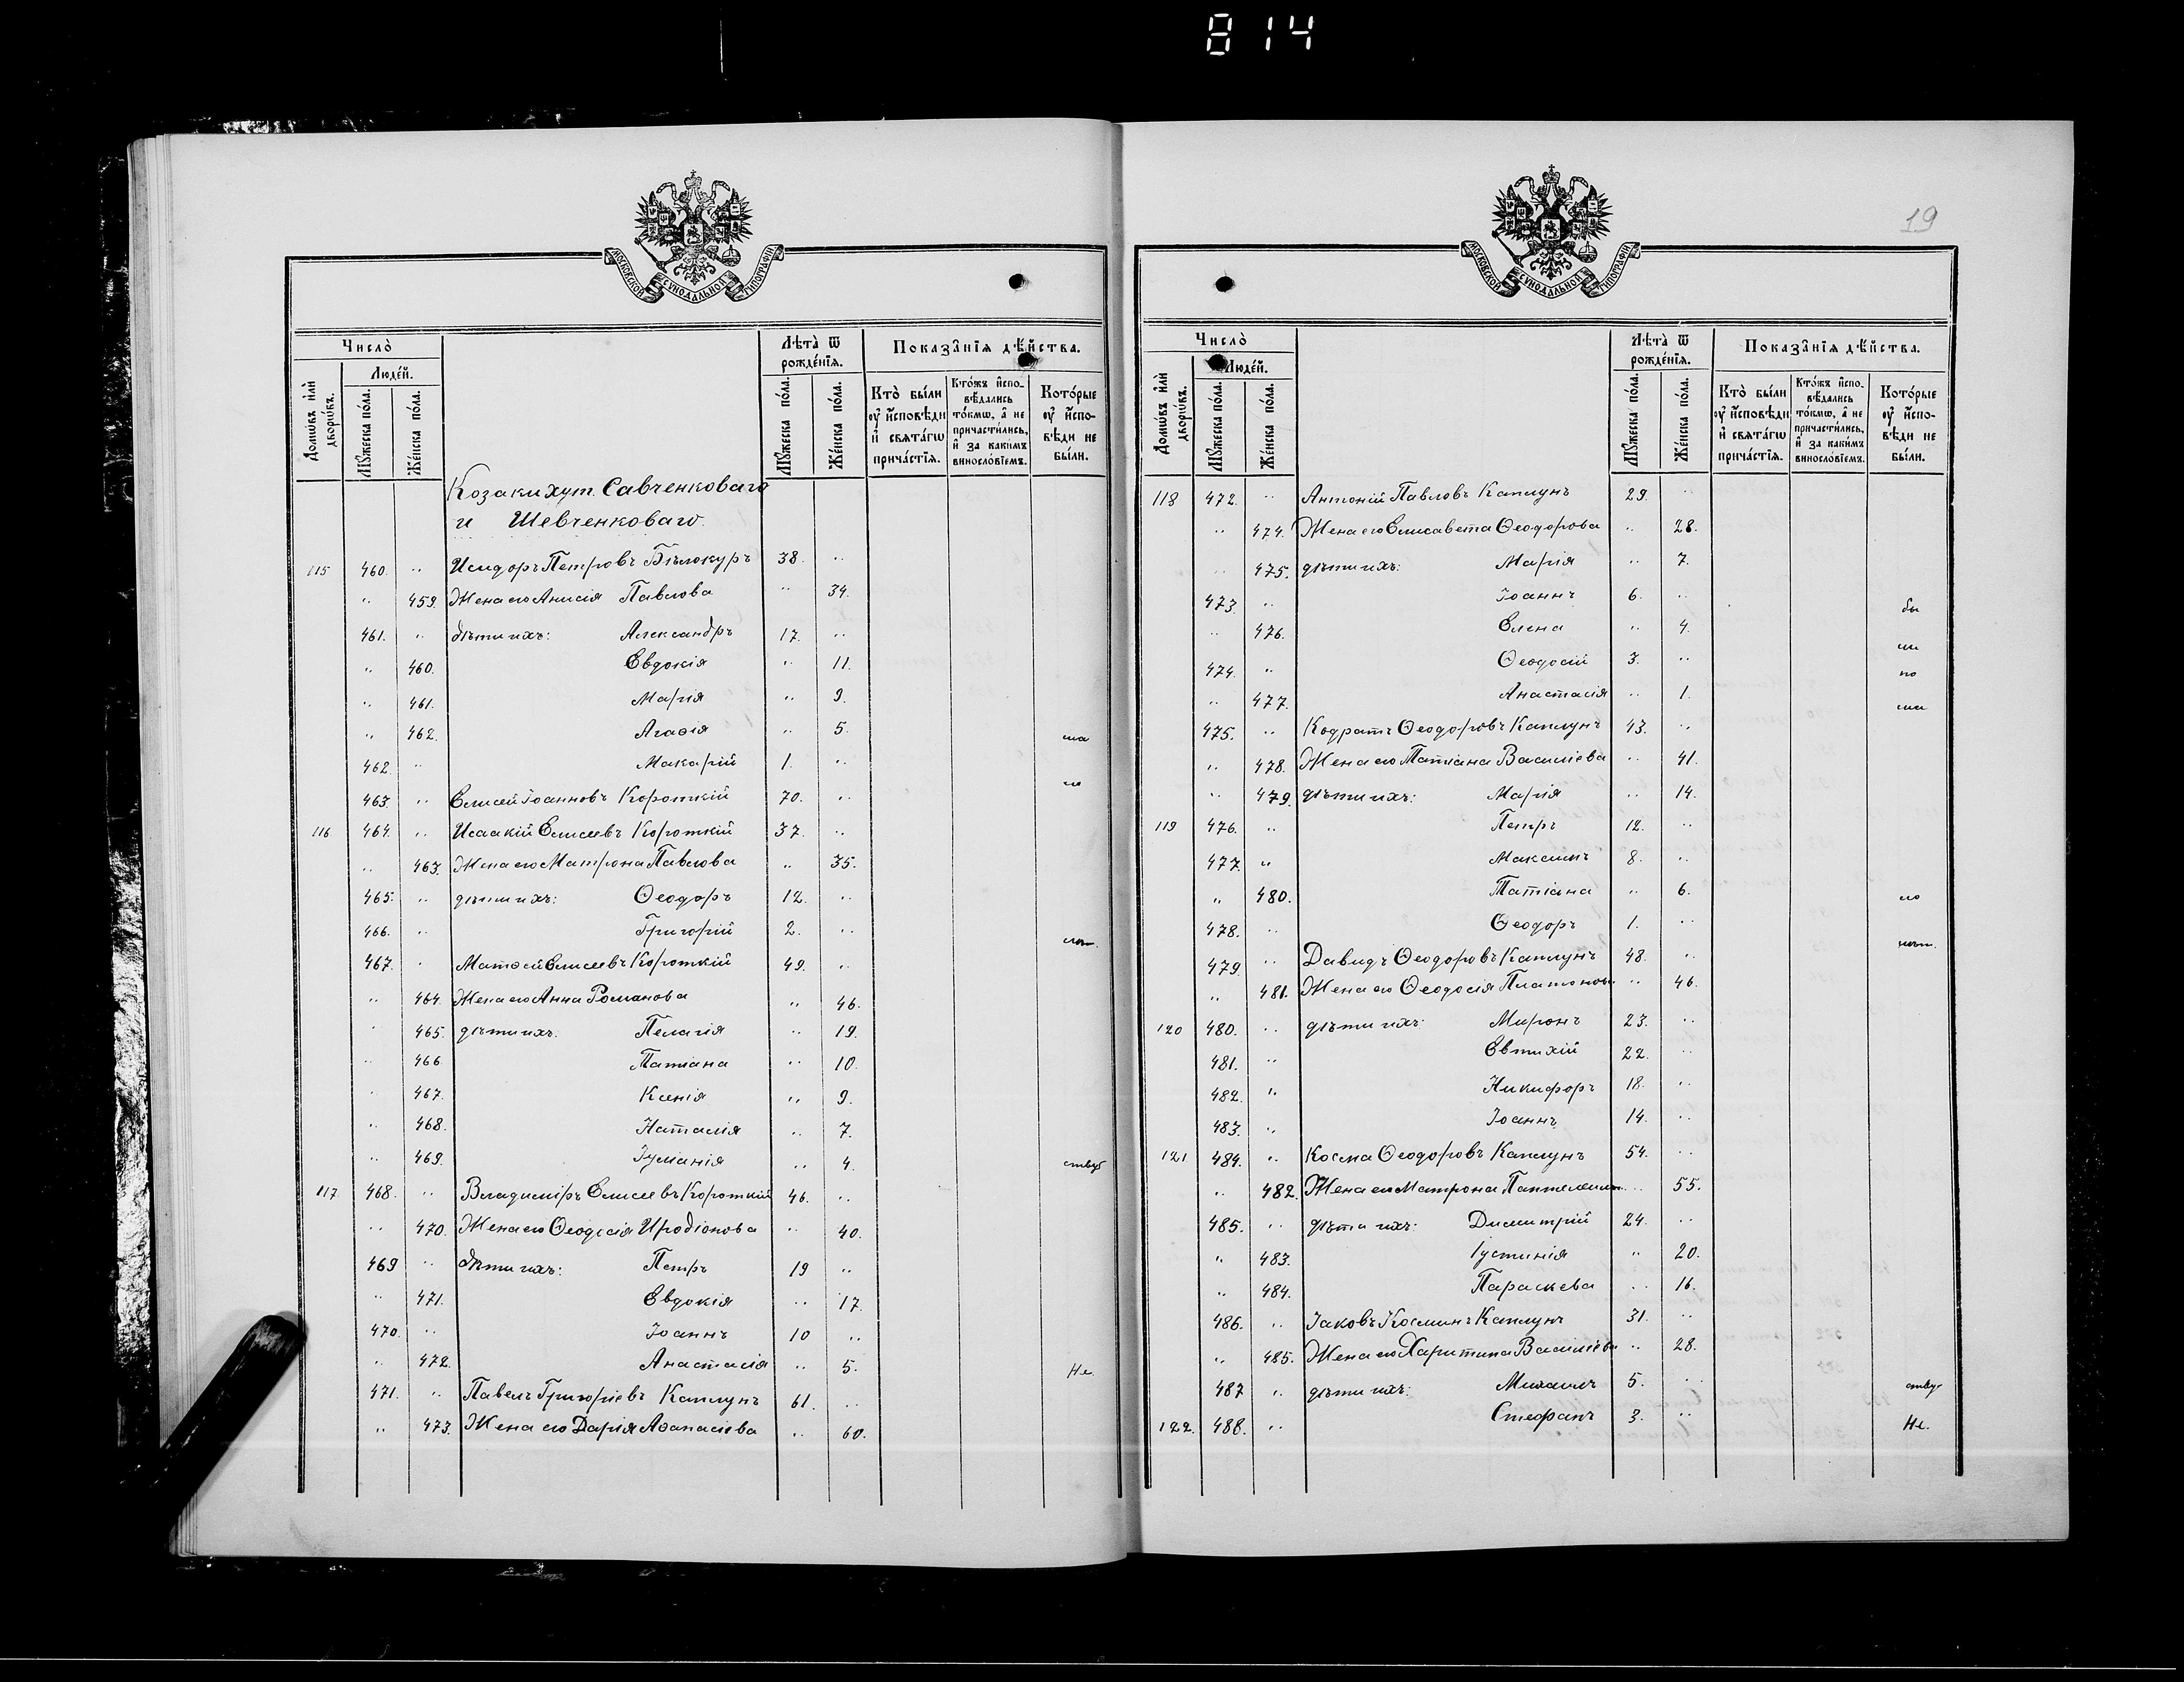 814
МОСКОВСКОЙ СѴНОДАЛЬНОЙ ТИПОГРАФІИ
Число̀
Люде́й.
Домѡ́въ и҆лѝ дворѡ́въ.
Мꙋ́жеска по́ла.
Же́нска по́ла.
Лѣ́та ѿ рожде́нїѧ.
Мꙋ́жеска по́ла.
Же́нска по́ла.
Показа̑нїѧ дѣ́йства.
Кто̀ бы́ли ᲂу҆ и҆сповѣ́ди и҆ свѧта́гѡ прича́стїѧ.
Кто́жъ и҆сповѣ́дались то́кмѡ, а҆ не причасти́лись, и҆ за каки́мъ виносло́вїемъ.
Кото́рые ᲂу҆ и҆сповѣ́ди не бы́ли.
Козаки хут. Савченковаго
и Шевченковаго.
115 460. „ Исидоръ Петровъ Бѣлокуръ 38. „
„ 459. Жена его Анисія Павлова „ 34.
461. „ дѣти ихъ: Александръ 17. „
„ 460. Евдокія „ 11.
„ 461. Марія „ 9.
„ 462. Агаѳія „ 5.
462. „ Макарій 1. „
463. „ Елисей Іоанновъ Короткій 70. „
116 464. „ Исаакій Елисеевъ Короткій 37. „
„ 463. Жена его Матрона Павлова „ 35.
465. „ дѣти ихъ: Ѳеодоръ 12. „
466. „ Григорій 2. „
467. „ Матѳей Елисеевъ Короткій 49. „
„ 464. Жена его Анна Романова „ 46.
„ 465. дѣти ихъ: Пелагія „ 19.
„ 466 Татіана „ 10.
„ 467. Ксенія „ 9.
„ 468. Наталія „ 7.
„ 469. Іуліанія „ 4. ству
117 468. „ Владиміръ Елисеевъ Короткій 46. „
„ 470. Жена его Ѳеодосія Иродіонова „ 40.
469 „ дѣти ихъ: Петръ 19 „
„ 471. Евдокія „ 17.
470. „ Іоаннъ 10 „
„ 472. Анастасія „ 5. Не
471. „ Павелъ Григоріевъ Каплунъ 61. „
„ 473. Жена его Дарія Аѳанасіева „ 60.
19
МОСКОВСКОЙ СѴНОДАЛЬНОЙ ТИПОГРАФІИ
Число̀
Люде́й.
Домѡ́въ и҆лѝ дворѡ́въ.
Мꙋ́жеска по́ла.
Же́нска по́ла.
Лѣ́та ѿ рожде́нїѧ.
Мꙋ́жеска по́ла.
Же́нска по́ла.
Показа̑нїѧ дѣ́йства.
Кто̀ бы́ли ᲂу҆ и҆сповѣ́ди и҆ свѧта́гѡ прича́стїѧ.
Кто́жъ и҆сповѣ́дались то́кмѡ, а҆ не причасти́лись, и҆ за каки́мъ виносло́вїемъ.
Кото́рые ᲂу҆ и҆сповѣ́ди не бы́ли.
118 472. „ Антоній Павловъ Каплунъ 29. „
„ 474. Жена его Елисавета Ѳеодорова „ 28.
„ 475. дѣти ихъ: Марія „ 7.
473 „ Іоаннъ 6. „ бы
„ 476. Елена „ 4. ли
474. „ Ѳеодосій 3. „ по
„ 477. Анастасія „ 1.
475. „ Кодратъ Ѳеодоровъ Каплунъ 43. „
„ 478. Жена его Татіана Василіева „ 41.
„ 479. дѣти ихъ: Марія „ 14.
119 476. „ Петръ 12. „
477. „ Максимъ 8. „
„ 480. Татіана „ 6.
478. „ Ѳеодоръ 1. „
479 „ Давидъ Ѳеодоровъ Каплунъ 48. „
„ 481. Жена его Ѳеодосія Платонова „ 46.
120 480. „ дѣти ихъ: Миронъ 23. „
481. „ Евтихій 22. „
482. „ Никифоръ 18. „
483. „ Іоаннъ 14. „
121 484. „ Косма Ѳеодоровъ Каплунъ 54. „
„ 482. Жена его Матрона „ 55.
485. „ дѣти ихъ: Димитрій 24. „
„ 483. Іустинія „ 20.
„ 484. Параскева „ 16.
486. „ Іаковъ Косминъ Каплунъ 31. „
„ 485. Жена его Харитина Василіева „ 28.
487 „ дѣти ихъ: Михаилъ 5. „ ству
122. 488. „ Стефанъ 3. „ Не